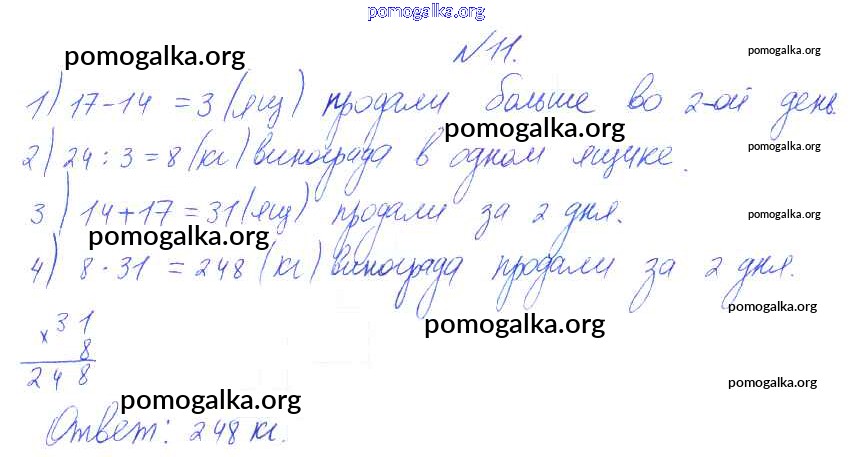 pomogalka.org
№ 11.
pomogalka.org
pomogalka.org
1) 17-14 = 3 (ящ) продали больше во 2-ой день.
pomogalka.org
2) 24 : 3 = 8 (кг) винограда в одном ящике.
pomogalka.org
3) 14+17 = 31 (ящ) продали за 2 дня.
pomogalka.org
pomogalka.org
4) 8 · 31 = 248 (кг) винограда продали за 2 дня.
pomogalka.org
× 31
pomogalka.org
8
248
pomogalka.org
pomogalka.org
Ответ: 248 кг.